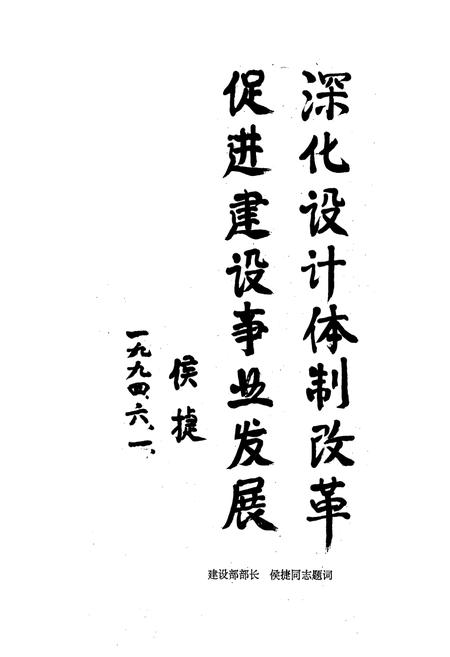 深化设计体制改革
促进建设事业发展
侯捷
一九九四.六.一.
建设部部长　侯捷同志题词